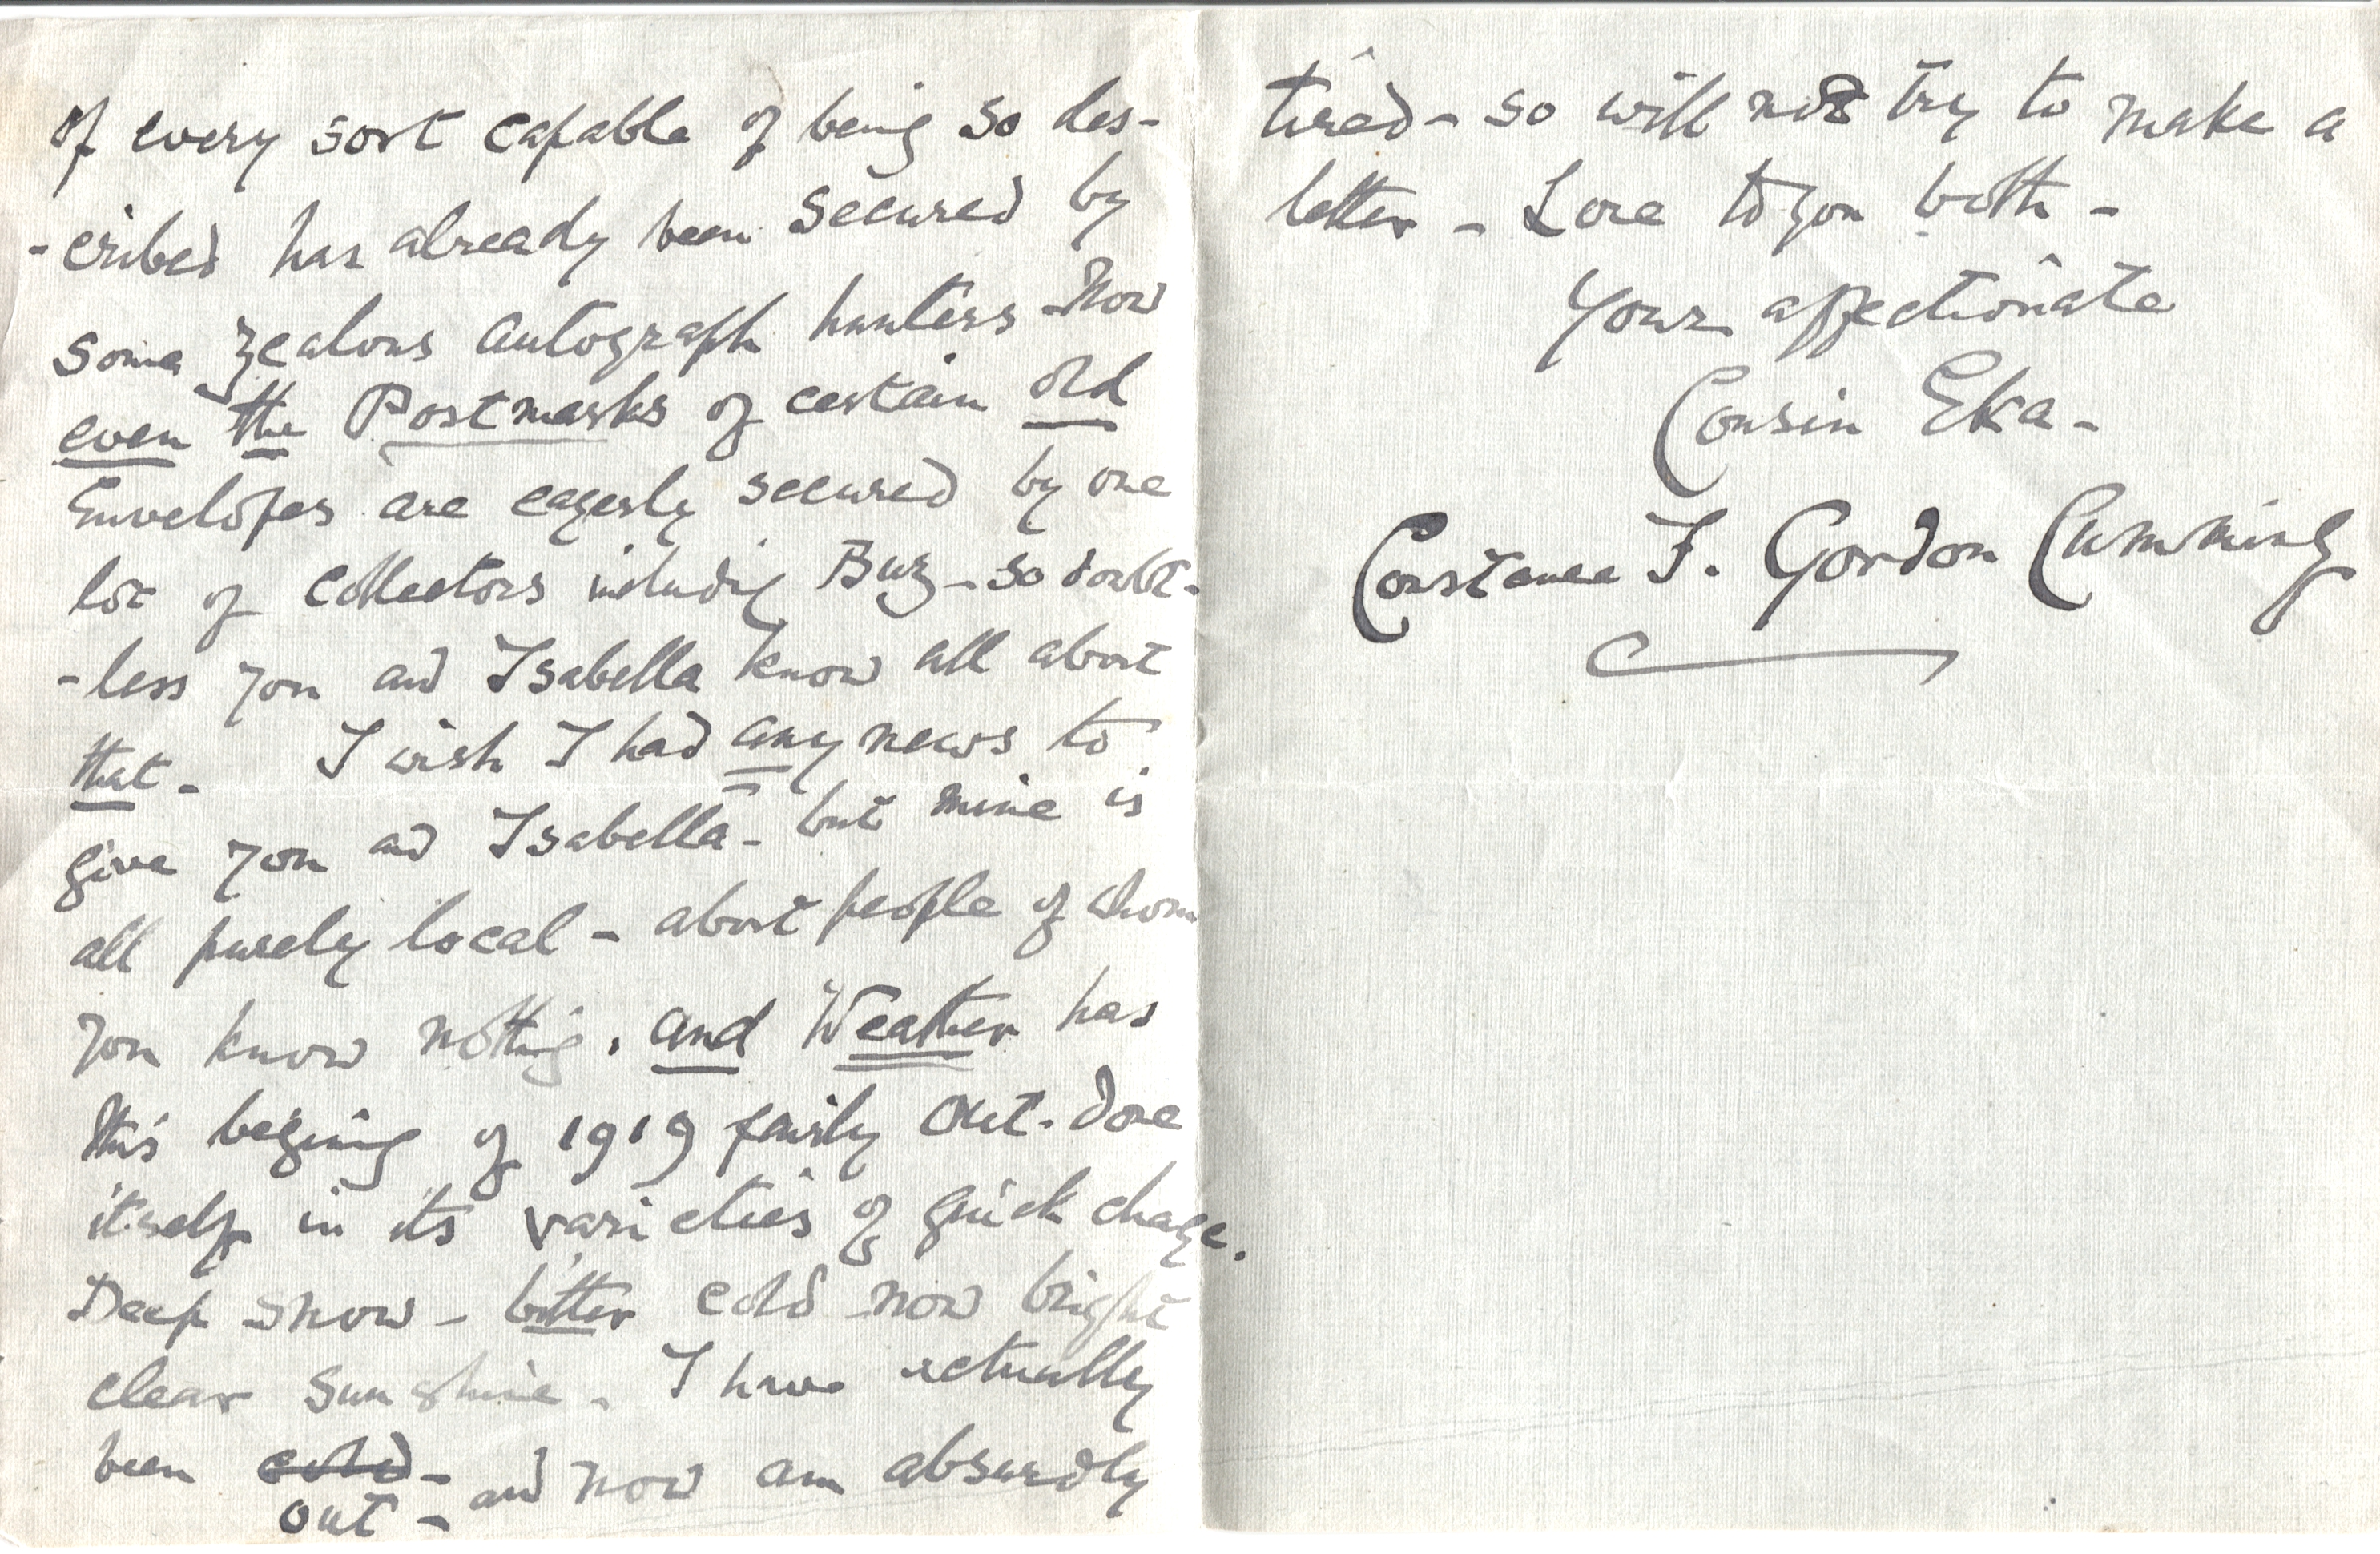 of every sort capable of being so des-
-cribed has already been secured by
some zealous autograph hunters - Now
even the Postmarks of certain old
Envelopes are eagerly secured by one
lot of collectors includig Buz - so doubt-
-less you and Isabella know all about
that - I wish I had any news to
give you and Isabella - but mine is
all purely local - about people of whom
you know nothing. and Weather has
this begining of 1919 fairly out-done
itself in its varieties of quick change.
Deep snow - bitter cold now bright
clear sunshine - I have actually
been cold -
out - and now am absurdly
tired - so will not try to make a
letter - Love to you both -
Your affectionate
Cousin Eka -
Constance F. Gordon Cumming